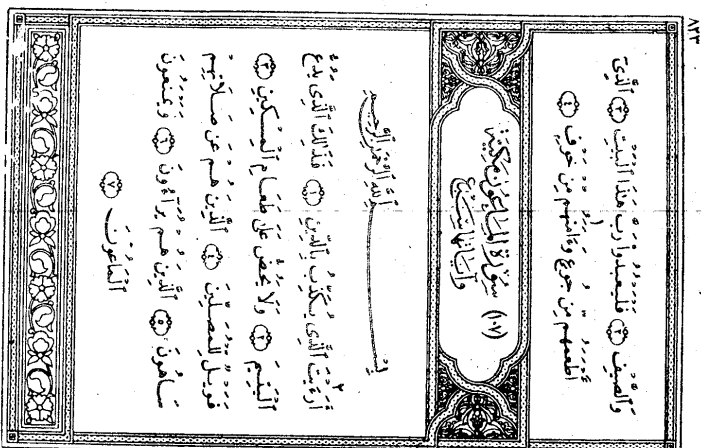 ٨٢٣
وَٱلصَّيْفِ ٢ فَلْيَعْبُدُوا۟ رَبَّ هَٰذَا ٱلْبَيْتِ ٣ ٱلَّذِىٓ
أَطْعَمَهُم مِّن جُوعٍ وَءَامَنَهُم مِّنْ خَوْفٍ ٤
(١٠٧) سُورَةُ المَاعُونِ مَكِيَّة
وَآيَاتُهَا سَبْعٌ
بِسْمِ ٱللَّهِ ٱلرَّحْمَٰنِ ٱلرَّحِيمِ
أَرَءَيْتَ ٱلَّذِى يُكَذِّبُ بِٱلدِّينِ ١ فَذَٰلِكَ ٱلَّذِى يَدُعُّ
ٱلْيَتِيمَ ٢ وَلَا يَحُضُّ عَلَىٰ طَعَامِ ٱلْمِسْكِينِ ٣
فَوَيْلٌ لِّلْمُصَلِّينَ ٤ ٱلَّذِينَ هُمْ عَن صَلَاتِهِمْ
سَاهُونَ ٥ ٱلَّذِينَ هُمْ يُرَآءُونَ ٦ وَيَمْنَعُونَ
ٱلْمَاعُونَ ٧